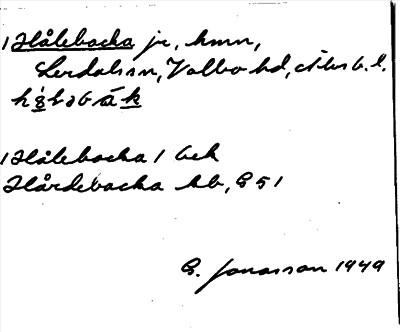 1 Hålebacka jr, hmn,
Lerdals sn, Valbo hd, Älvsb. l.
1 Hålebacka 1 bek
Hårdebacka hb, G51
G. Jonasson 1949